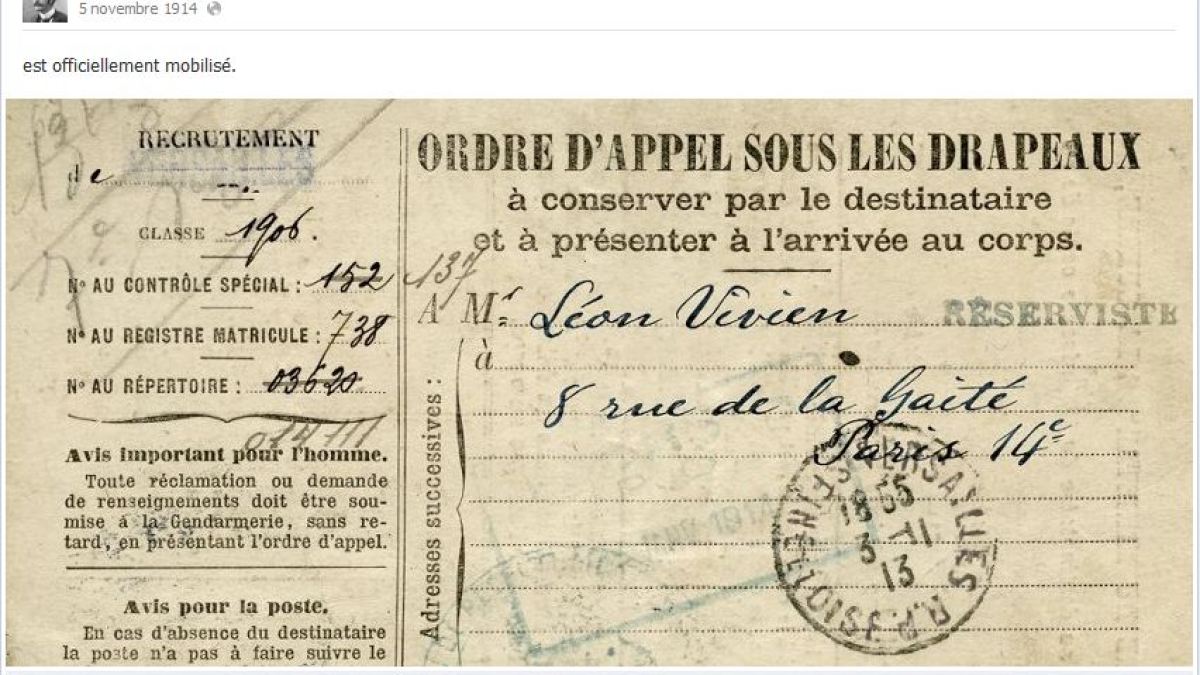 5 novembre 1914
est officiellement mobilisé.
RECRUTEMENT
de
CLASSE 1906.
Nº AU CONTRÔLE SPÉCIAL : 152 137
Nº AU REGISTRE MATRICULE : 738
Nº AU RÉPERTOIRE : 03620
Avis important pour l'homme.
Toute réclamation ou demande
de renseignements doit être sou-
mise à la Gendarmerie, sans re-
tard, en présentant l'ordre d'appel.
Avis pour la poste.
En cas d'absence du destinataire
la poste n'a pas à faire suivre le
ORDRE D'APPEL SOUS LES DRAPEAUX
à conserver par le destinataire
et à présenter à l'arrivée au corps.
A Mr Léon Vivien RÉSERVISTE
à
8 rue de la Gaité
Paris 14e
Adresses successives :
VERSAILLES R.P.
18 55
3 -11
13